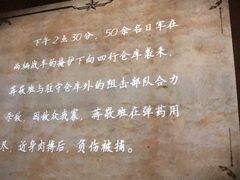 下午2点30分，50余名日军在
两辆战车的掩护下向四行仓库袭来，
蒋敬班与驻守仓库外的狙击部队合力
杀敌，因敌众我寡，蒋敬班在弹药用
尽，近身肉搏后，负伤被捕。